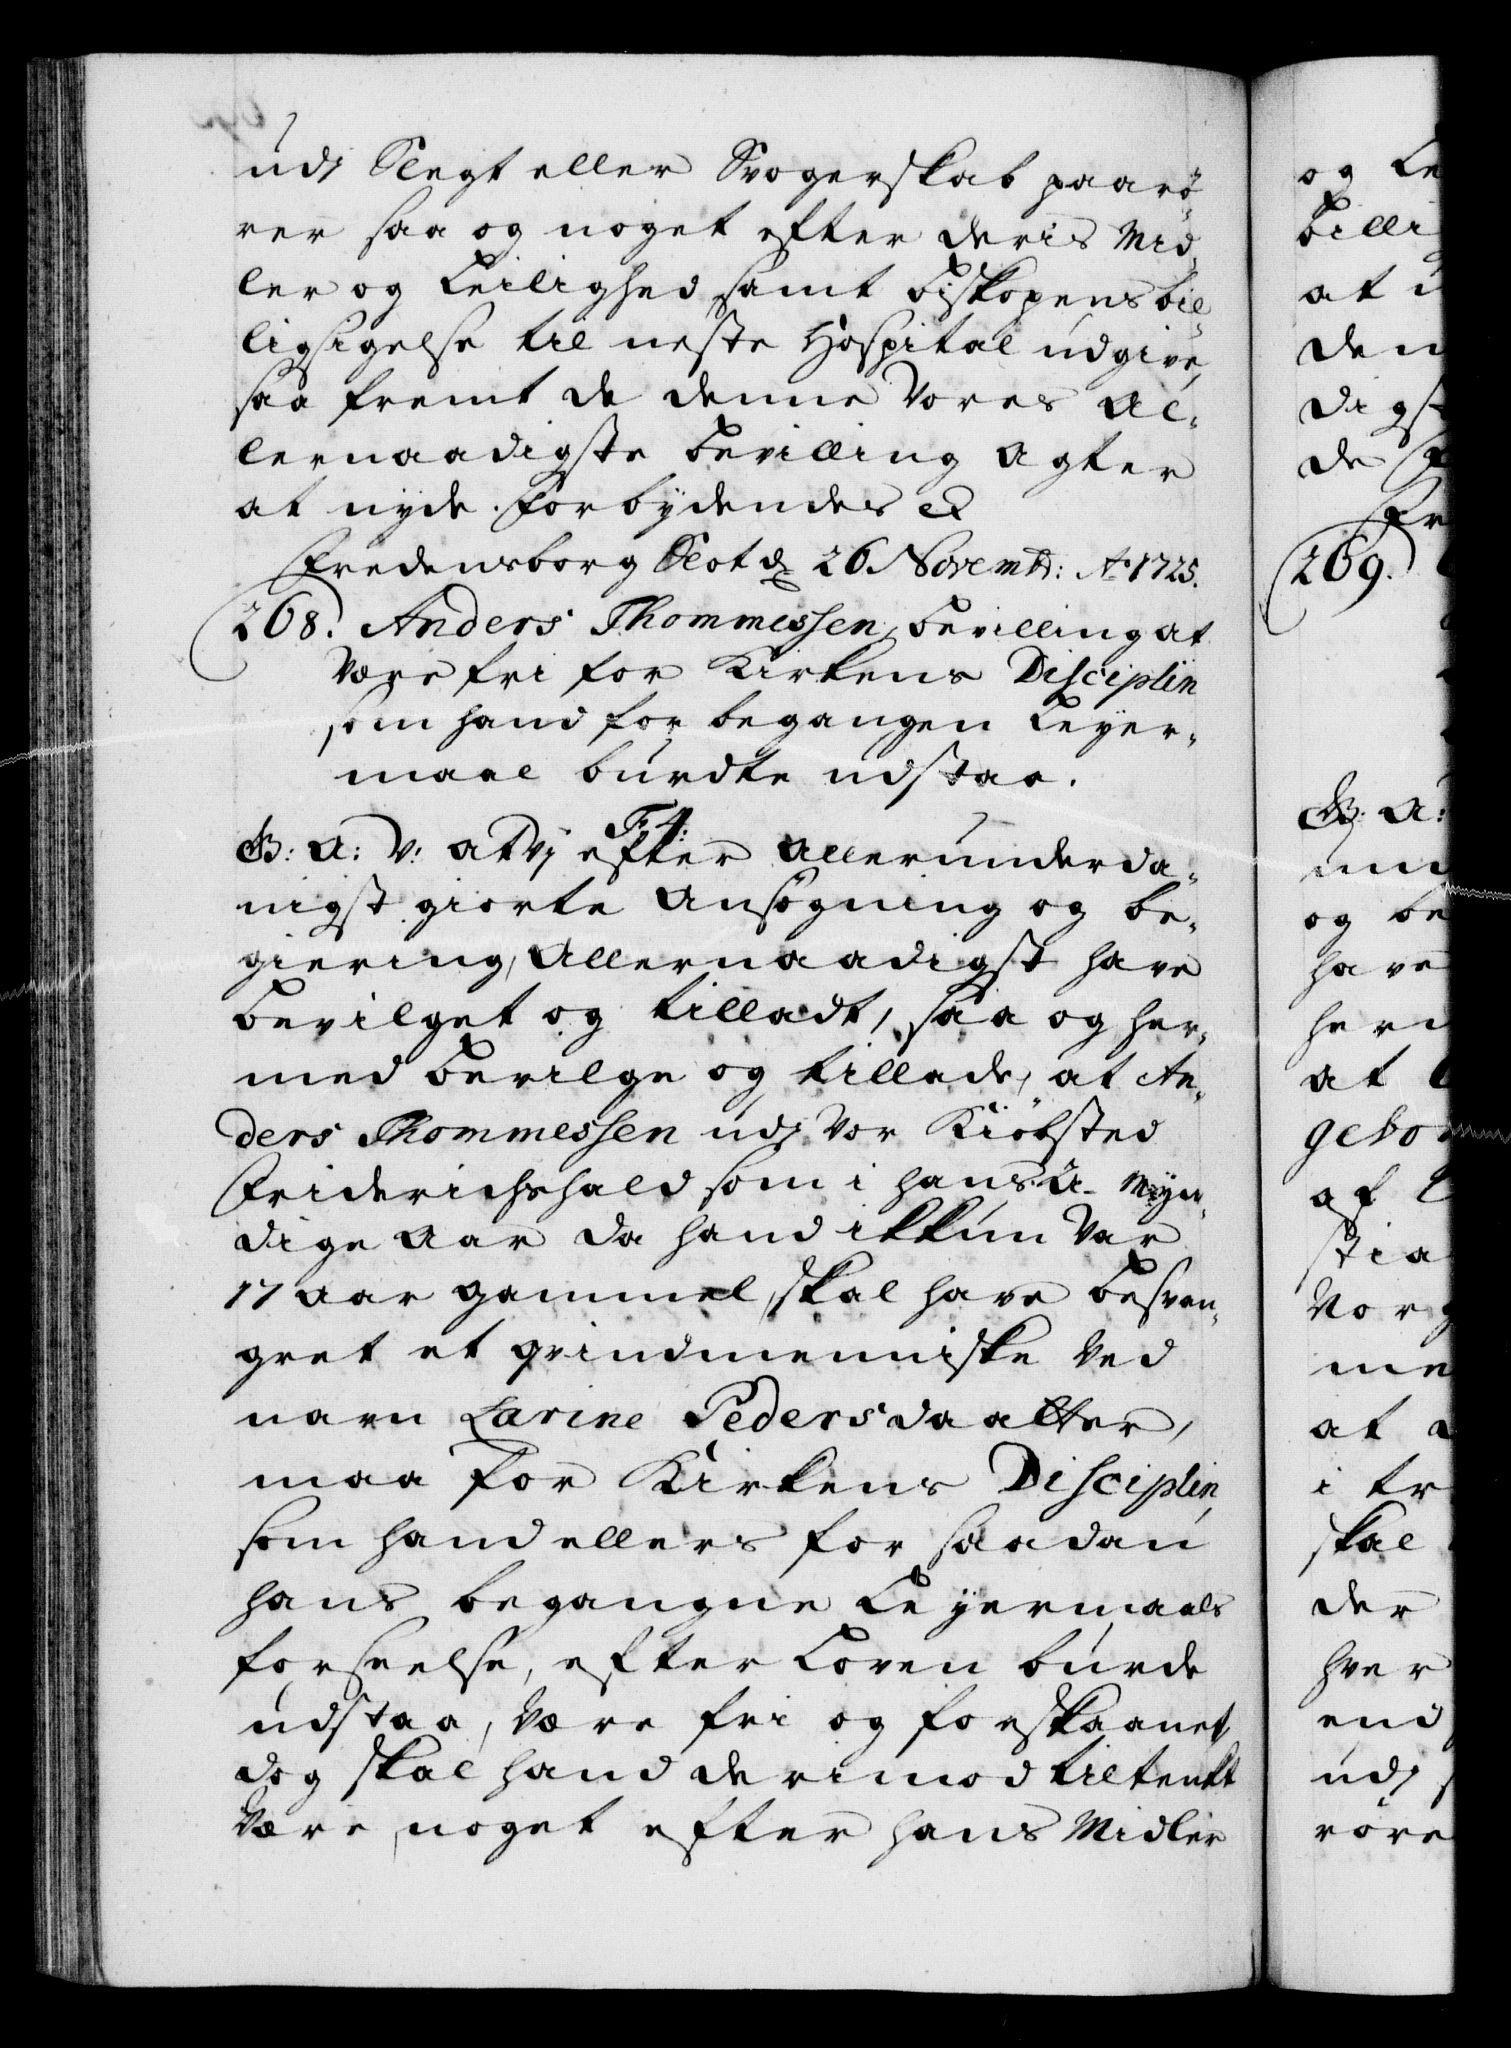 udj Slegt eller Svogerskab paarö-
rer saa og noget efter deris Mid-
ler og Leilighed samt Biskopens bil-
ligsigelse til neste Hospital udgive,
saa fremt de denne Vores Al-
lernaadigste Bevilling agter
at nyde. Forbydendes &
Fredensborg Slot d. 26 Novembr: Ao 1725.
268. Anders Thommessen, bevilling at
være fri for Kirkens Disciplin
som hand for begangen Leyer-
maal burdte udstaa.
F: 4:
G: A: V: at Vj efter allerunderda-
nigst giorte Ansögning og be-
giering, Allernaadigst have
bevilget og tilladt, saa og her-
med bevilge og tillade, at An-
ders Thommessen udj Vor Kiöbsted
Friderichshald som i hans U-Myn-
dige Aar da hand ikkun Var
17 Aar gammel, skal have besvan-
gret et qvindmenniske Ved
navn Larine Pedersdaatter,
maa for Kirkens Disciplin,
som hand ellers for saadan
hans begangne Leyermaals
forseelse, efter Loven burde
udstaa, Være fri og forskaanet,
dog skal hand derimod tiltenkt
Være, noget efter hans Midler
og Le
billi
at u
den
digst
de
Fr
269.
G: A:
und
og be
have
herm
at
gebo
af
stia
Vor
me
at
i tr
skal
der
hver
end
udj
röre